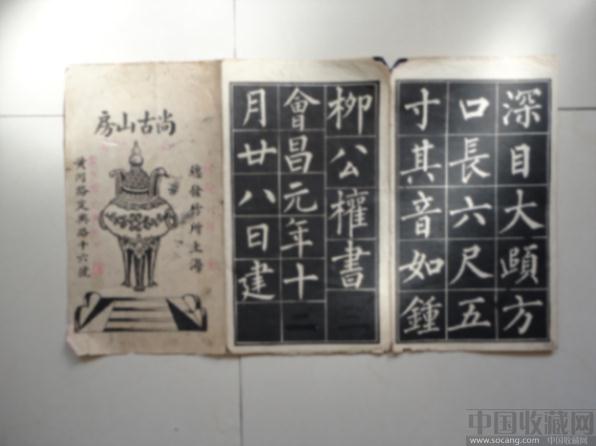 深目大頤方
口長六尺五
寸其音如鍾
柳公權書
會昌元年十二
月廿八日建
尚古山房
總發行所上海
路定興路十六號
中国收藏网
www.socang.com 中国收藏网